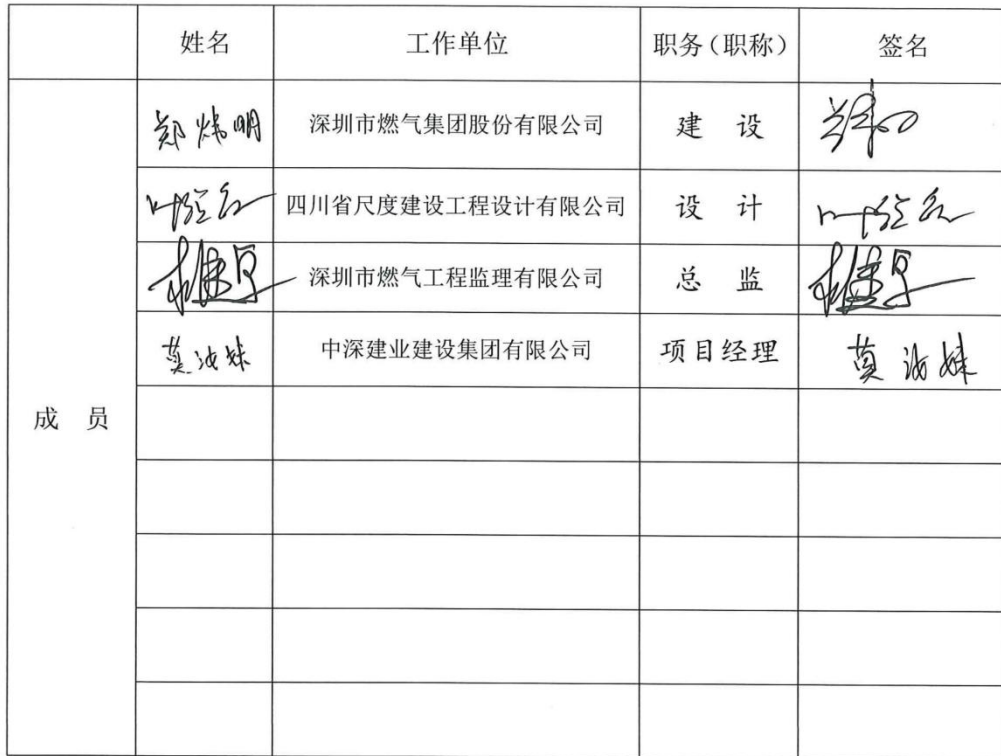 姓名 工作单位 职务(职称) 签名
郑炜明 深圳市燃气集团股份有限公司 建 设
四川省尺度建设工程设计有限公司 设 计
深圳市燃气工程监理有限公司 总 监
莫汝妹 中深建业建设集团有限公司 项目经理 莫汝妹
成 员